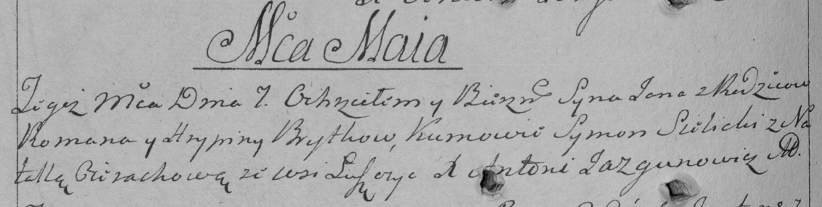 Mca Maia
Tegoż Mca Dnia 7. Ochrzciłem y Bierzm Syna Jana z Rodzicow
Romana y Hrypiny Brytkow, Kumowie Symon Szilicki z Na
talką ze wsi X Antoni Jazgunowicz